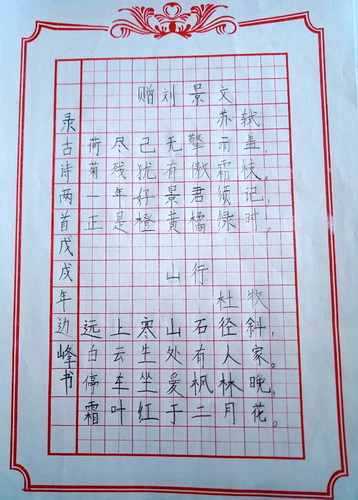 赠刘景文
苏轼
荷尽已无擎雨盖，
菊残犹有傲霜枝。
一年好景君须记，
正是橙黄橘绿时。
山行
杜牧
远上寒山石径斜，
白云生处有人家。
停车坐爱枫林晚，
霜叶红于二月花。
录古诗两首戊戌年边峰书